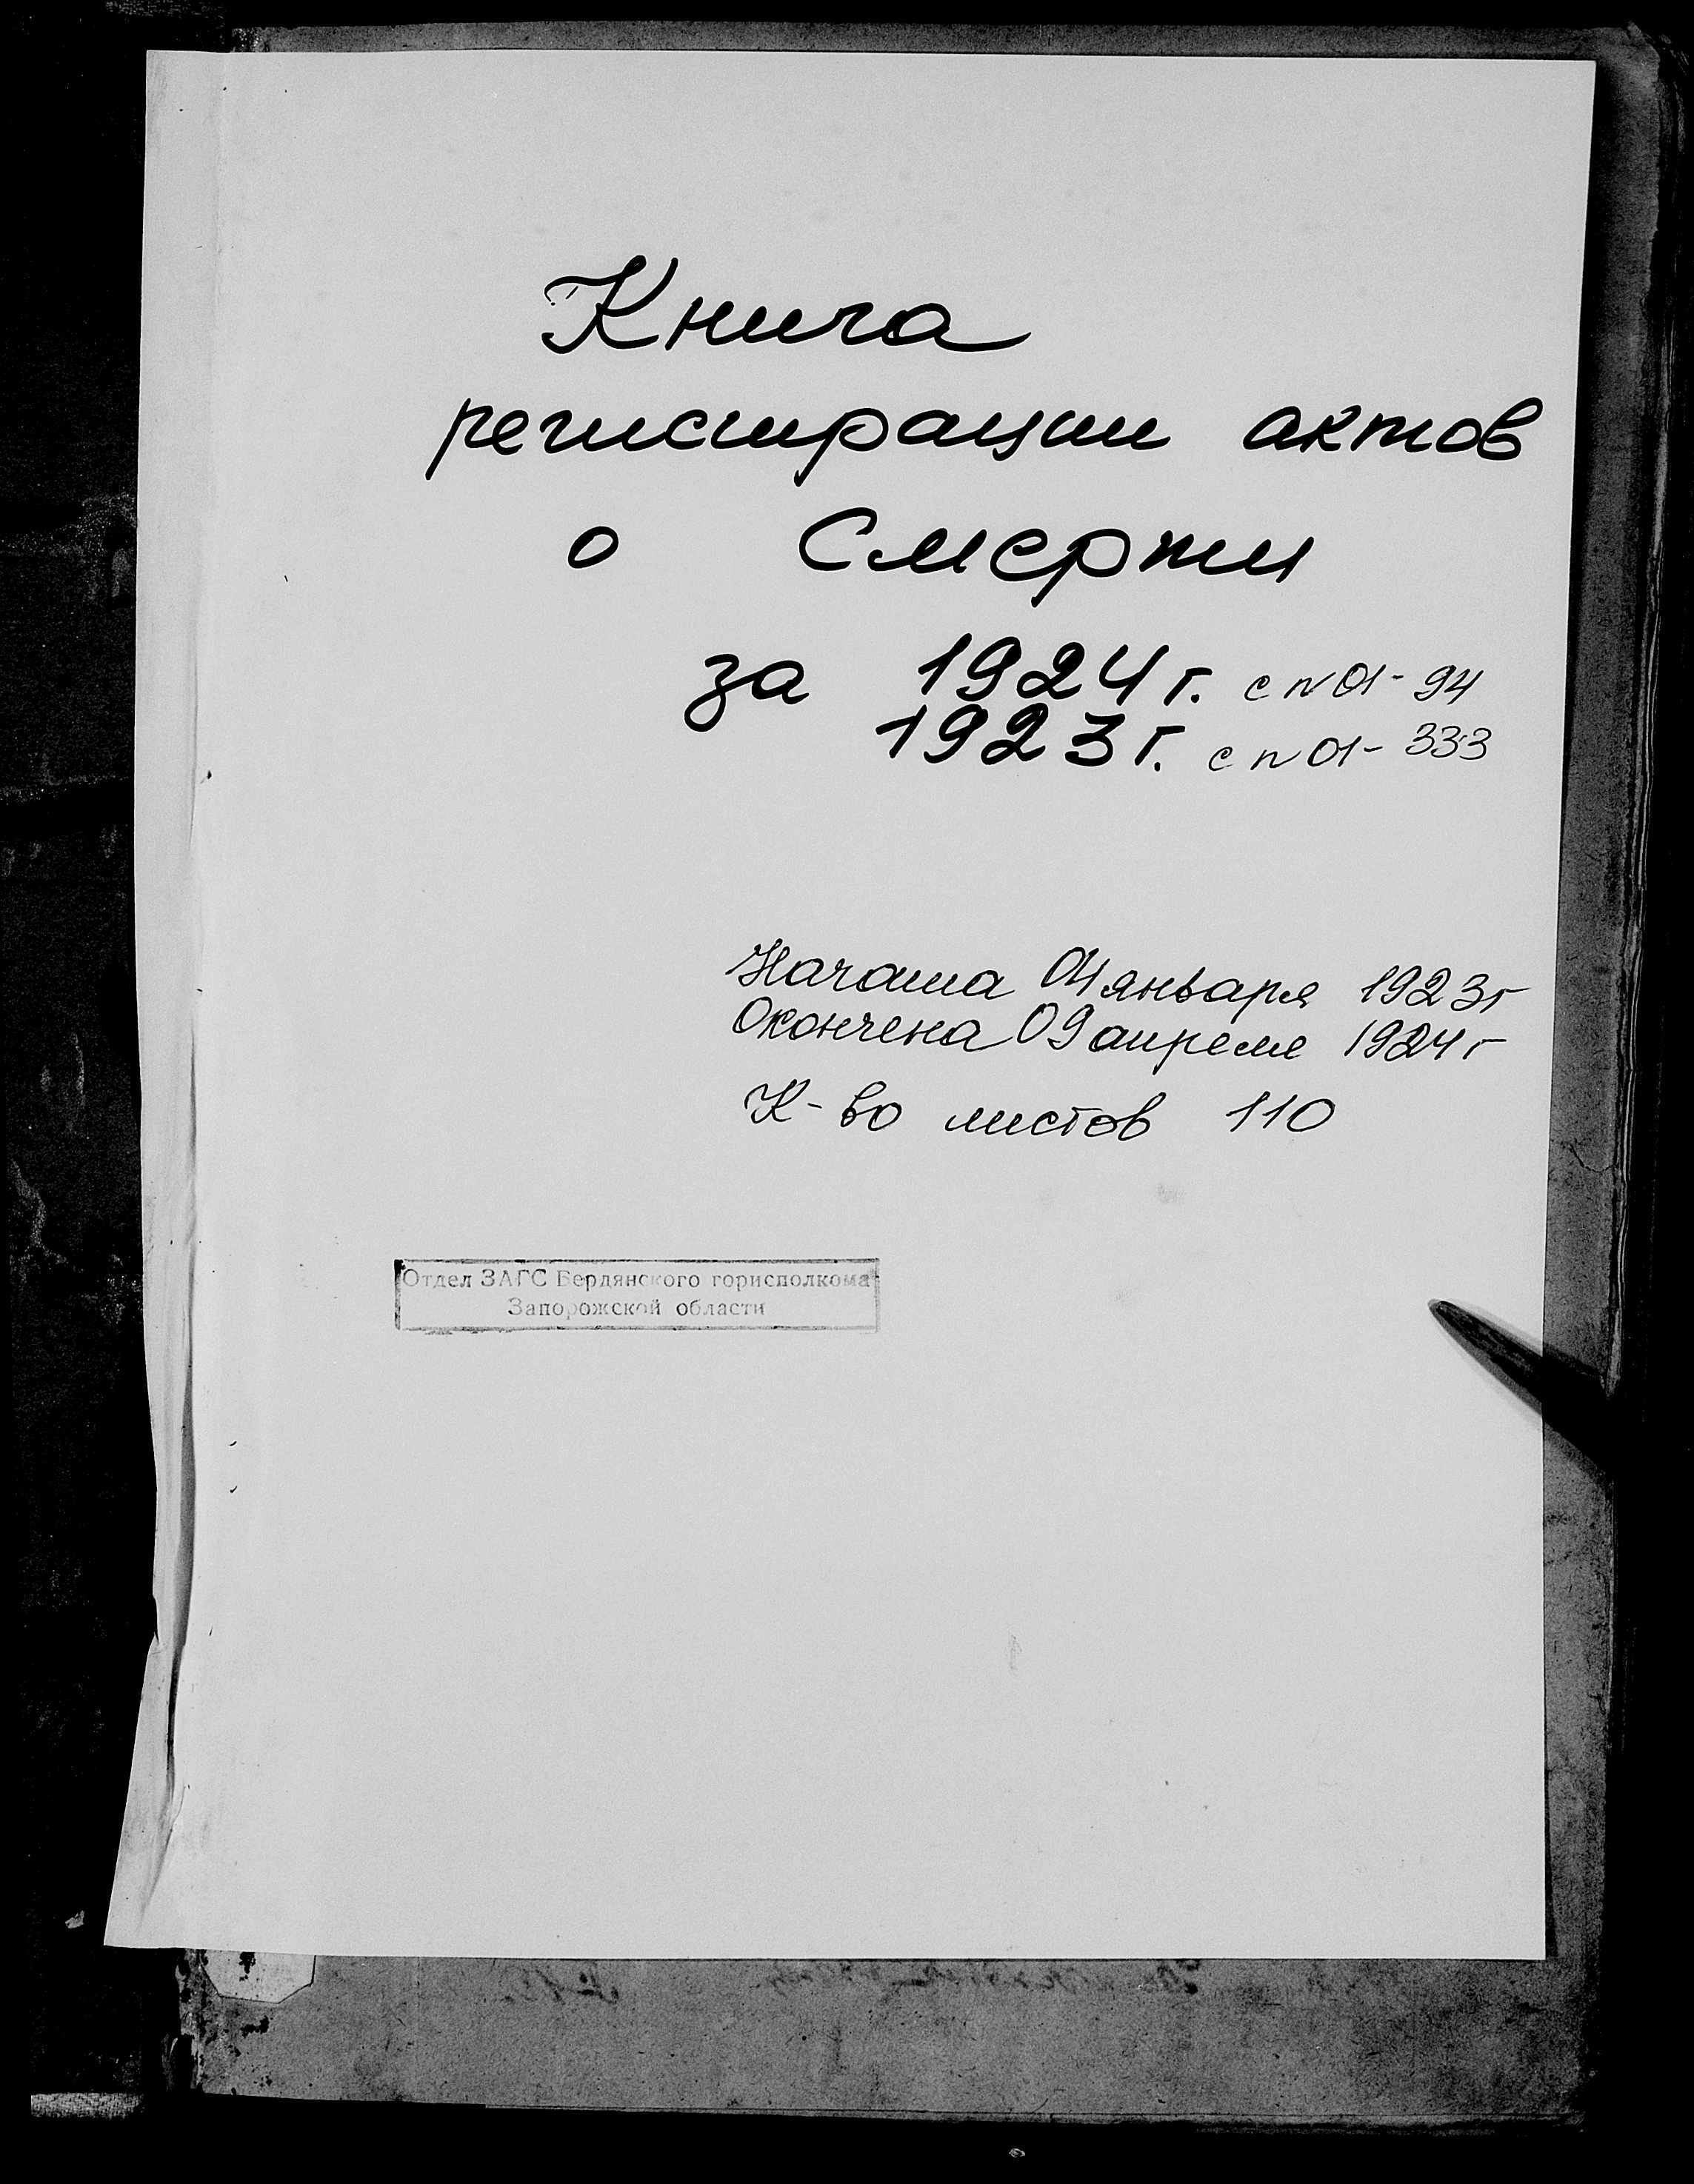 Книга
регистрации актов
о Смерти
за 1924 г. с № 01 - 94
1923 г. с № 01 - 333
Начата 04 января 1923 г
Окончена 09 апреля 1924 г
К-во листов 110
Отдел ЗАГС Бердянского горисполкома
Запорожской области